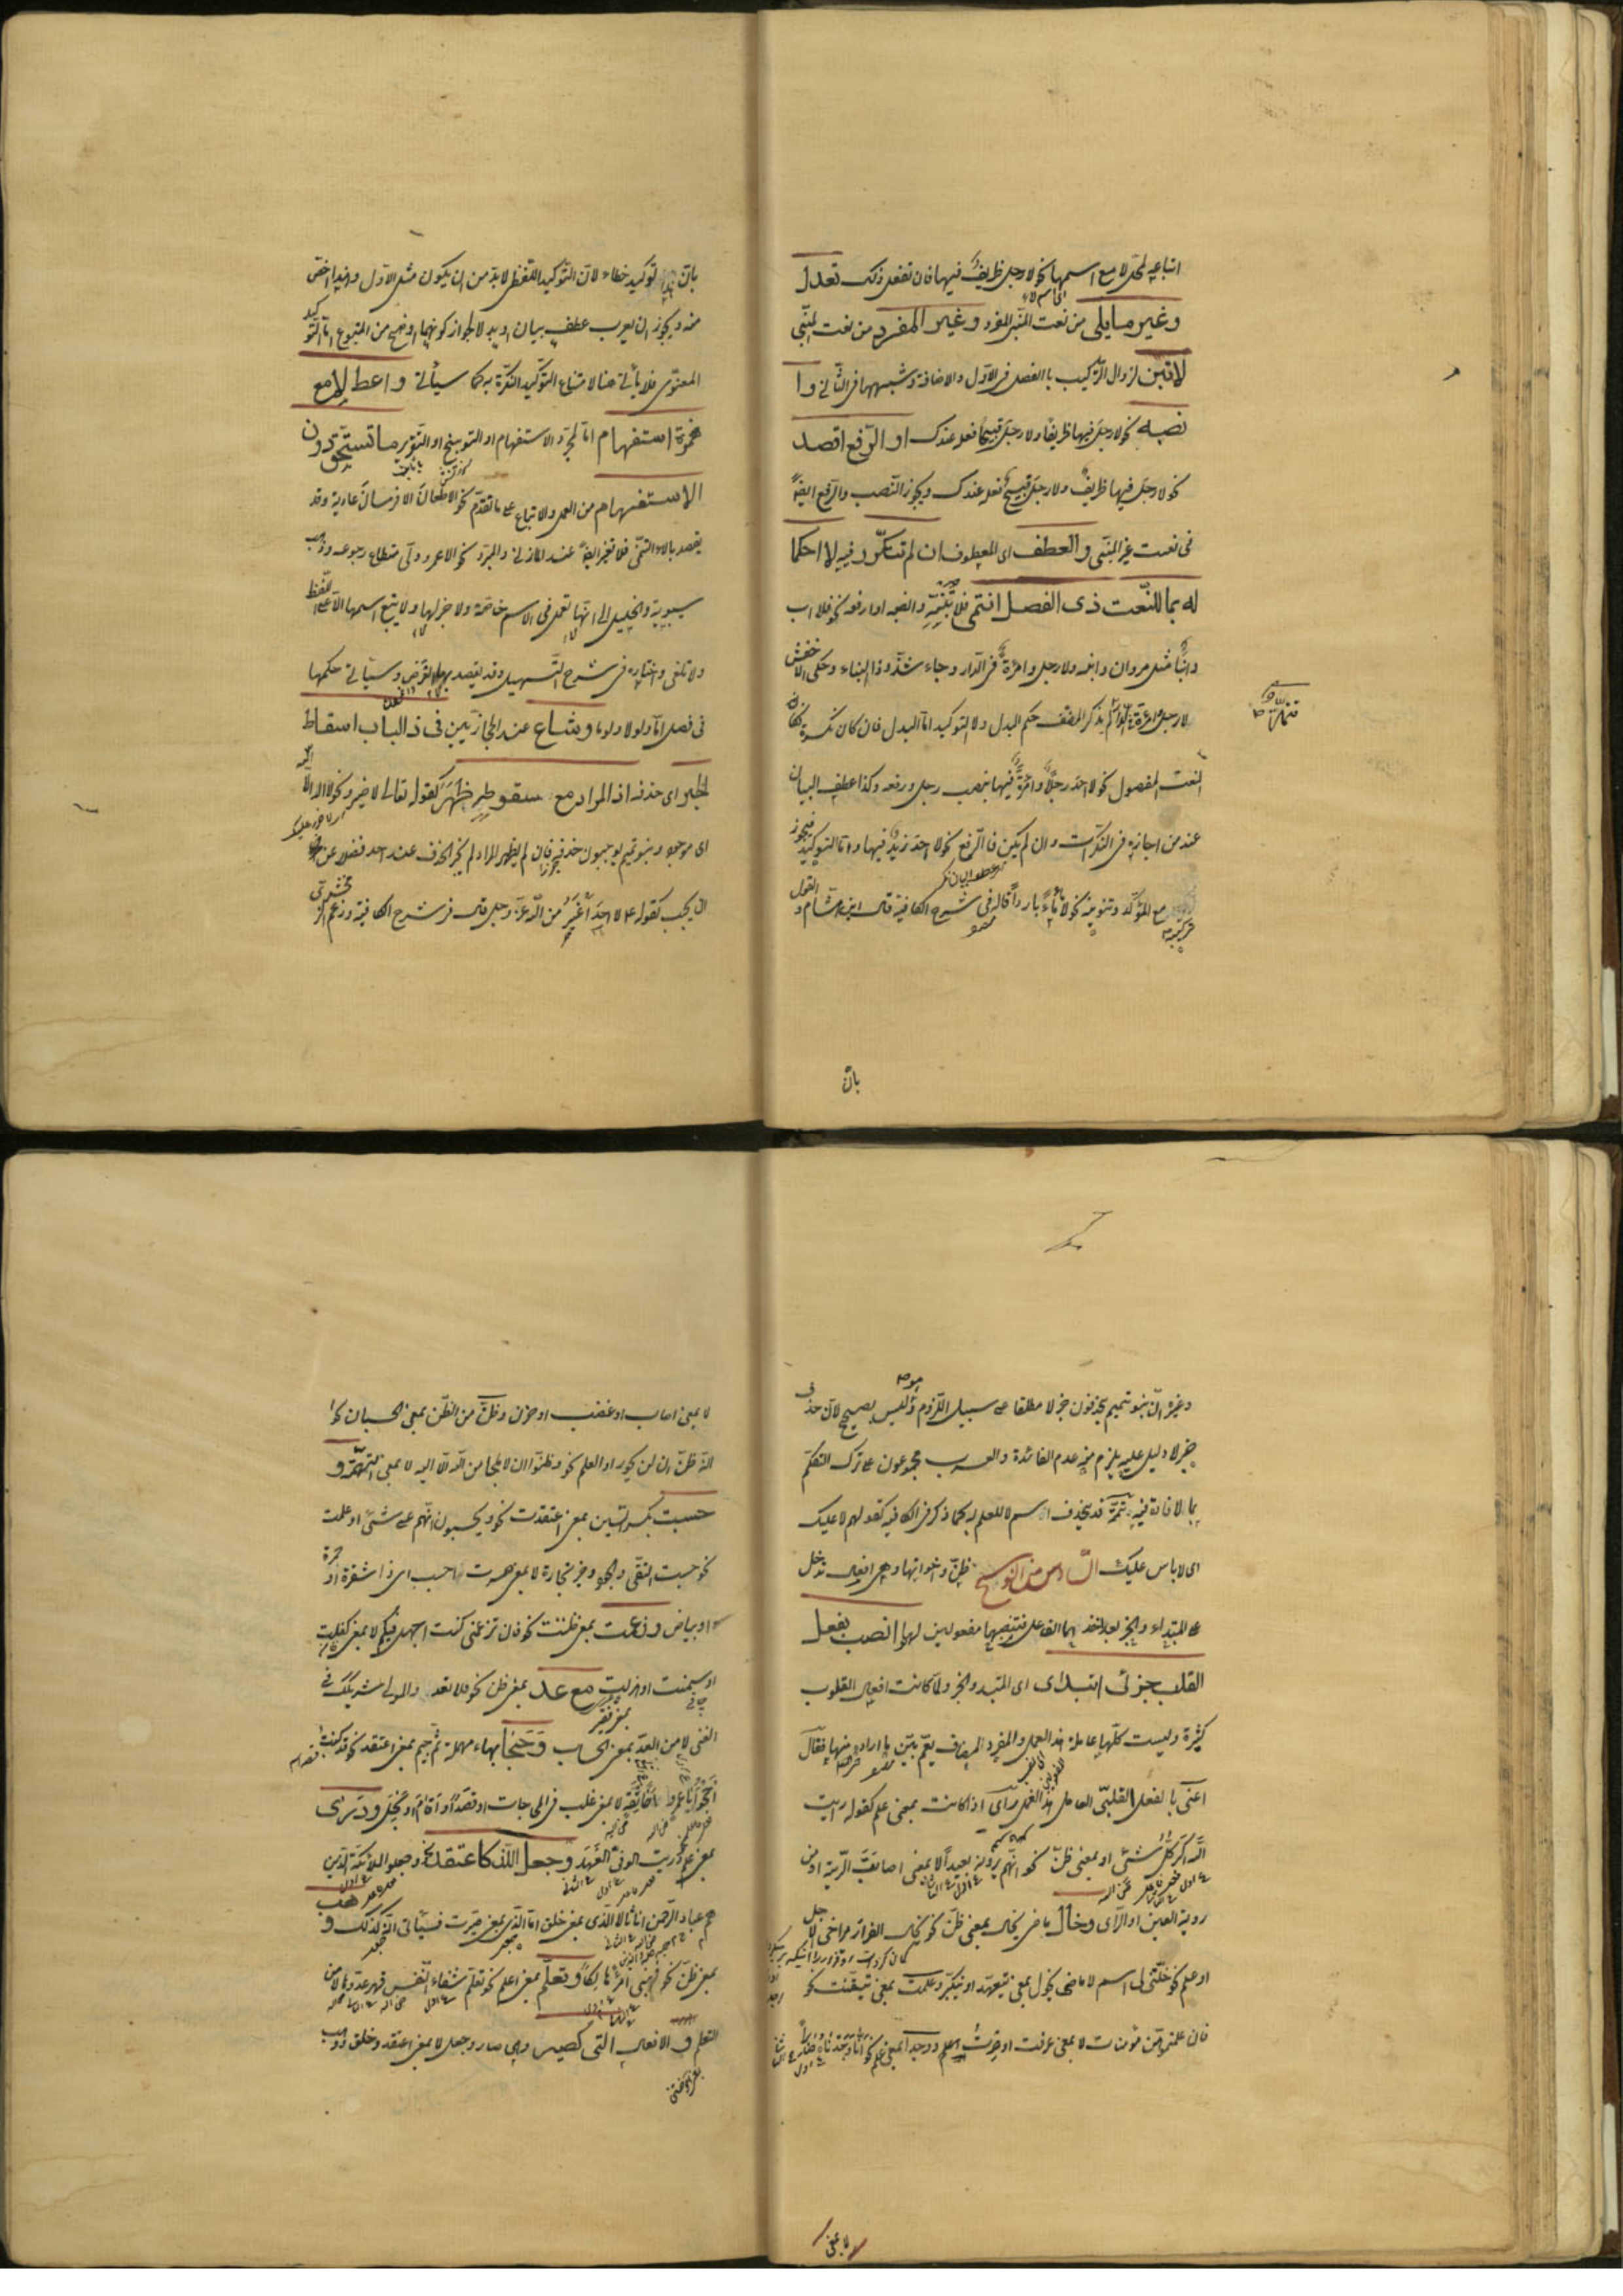 اتباعه لمحل لا مع اسمها نحو لا رجل ظريف فيها فان تفعل ذلك تعدل
وغير ما يلى من نعت المبنى المفرد وغير المفرد من نعت المبنى
لا تبن لزوال التركيب بالفصل فى الاول والاضافة وشبهها فى الثانى وا
نصبه نحو لا رجل فيها ظريفا ولا رجل قبيحا فعله عندك او الرفع اقصد
نحو لا رجل فيها ظريف ولا رجل قبيح فعله عندك ويجوز النصب والرفع ايضا
فى نعت غير المبنى والعطف اى المعطوف ان لم تتكرر فيه لا احكما
له بما للنعت ذى الفصل انتمى فلا تبنه وانصبه او ارفعه نحو فلا اب
وابنا مثل مروان وابنه ولا رجل وامرأة فى الدار وجاء شذوذا البناء وحكى الاخفش
لا رجل وامرأة لم يذكر المصنف حكم البدل ولا التوكيد اما البدل فان كان نكرة كان
النعت المفصول نحو لا احد رجلا وامرأة فيها بنصب رجل ورفعه وكذا عطف البيان
عند من اجازه فى النكرات وان لم يكن فالرفع نحو لا احد زيد فيها واما التوكيد فيجوز
تركيبه مع المؤكد وتنوينه نحو لا ماء ماء باردا قاله فى شرح الكافية قال ابن هشام والقول
بان
بان هذا توكيد خطاء لان التوكيد اللفظى لا بد من ان يكون مثل الاول وهذا اخص
منه ويجوز ان يعرب عطف بيان او بدلا لجواز كونهما اوضح من المتبوع اما التوكيد
المعنوى فلا يأتى هنا لامتناع التوكيد النكرة به كما سيأتى واعط لا مع
همزة استفهام اما لمجرد الاستفهام او التوبيخ او التقرير ما تستحق دون
الاستفهام من العمل والاتباع على ما تقدم نحو الا طعان الا فرسان عادية وقد
يقصد بالا التمنى فلا تغير ايضا عند المازنى والمبرد نحو الا عمر ولى مستطاع رجوعه وذهب
سيبويه والخليل الى انها تعمل فى الاسم خاصة ولا خبر لها ولا يتبع اسمها الا على اللفظ
ولا تلغى واختاره فى شرح التسهيل وقد يقصد بها العرض وسيأتى حكمها
فى فصل اما ولولا ولوما وشاع عند الحجازيين فى ذا الباب اسقاط
الخبر اى حذفه اذ المراد مع سقوطه ظهر كقوله تعالى لا ضير ونحو لا اله الا الله
اى موجود وبنو تميم يوجبون حذفه فان لم يظهر المراد لم يجز الحذف عند احد فضلا عن
ان يجب كقوله ع لا احد اغير من الله عز وجل قال فى شرح الكافية وزعم الزمخشرى
وغيره ان بنو تميم يحذفون خبر لا مطلقا على سبيل اللزوم وليس بصحيح لان حذف
خبر لا دليل عليه يلزم منه عدم الفائدة والعرب مجموعون على ترك التكلم
بما لا فائدة فيه تتمة قد يحذف اسم لا للعلم به كما ذكر فى الكافية كقولهم لا عليك
اى لا باس عليك السادس من النواسخ ظن واخواتها وهى افعال تدخل
على المبتداء والخبر بعد اخذها الفاعل فتنصبهما مفعولين لها انصب بفعل
القلب جزئى ابتدا اى المبتدء والخبر ولما كانت افعال القلوب
كثيرة وليست كلها عاملة هذا العمل والمفرد المضاف يعم بين ما اراده منها فقال
اعنى بالفعل القلبى العامل هذا العمل رأى اذا كانت بمعنى علم كقوله رأيت
الله اكبر كل شئى او بمعنى ظن نحو انهم يرونه بعيدا لا بمعنى اصاب الرية او من
روية العين او الرأى وخال ماضى يخال بمعنى ظن نحو يخال الفرار يراخى الاجل
او علم نحو خلتنى لى اسم لا ماضى يخول بمعنى يتعهد او يتكبر وعلمت بمعنى تيقنت نحو
فان علمتموهن مؤمنات لا بمعنى عرفت او صرت اعلم ووجدا بمعنى علم نحو انا وجدناه صابرا
لا بمعنى
لا بمعنى اصاب او غضب او حزن وظن من الظن بمعنى الحسبان نحو
انه ظن ان لن يحور او العلم نحو وظنوا ان لا ملجا من الله الا اليه لا بمعنى التهمة و
حسبت بكسر السين بمعنى اعتقدت نحو ويحسبون انهم على شئى او علمت
نحو حسبت التقى والجود خير تجارة لا بمعنى صرت احسب اى ذا شقرة او حمرة
او بياض وزعمت بمعنى ظننت نحو فان تزعمينى كنت اجهل فيكم لا بمعنى كفلت
او سمنت او هزلت مع عد بمعنى ظن نحو فلا تعدد المولى شريكك فى
الغنى لا من العد بمعنى الحساب وحجا بحاء مهملة ثم جيم بمعنى اعتقد نحو قد كنت
احجو ابا عمرو اخا ثقة لا بمعنى غلب فى المحاجات او قصد او اقام او بخل ودرى
بمعنى علم نحو دريت الوفى العهد وجعل اللذ كاعتقد نحو وجعلوا الملائكة الذين
هم عباد الرحمن اناثا لا الذى بمعنى خلق اما الذى بمعنى صيرت فسيأتى انه كذلك وهب
بمعنى ظن نحو فهبنى امرأ هالكا وتعلم بمعنى اعلم نحو تعلم شفاء النفس قهر عدوها لا من
التعلم والافعال التى كصير وهى صار وجعل لا بمعنى اعتقد وخلق ووهب